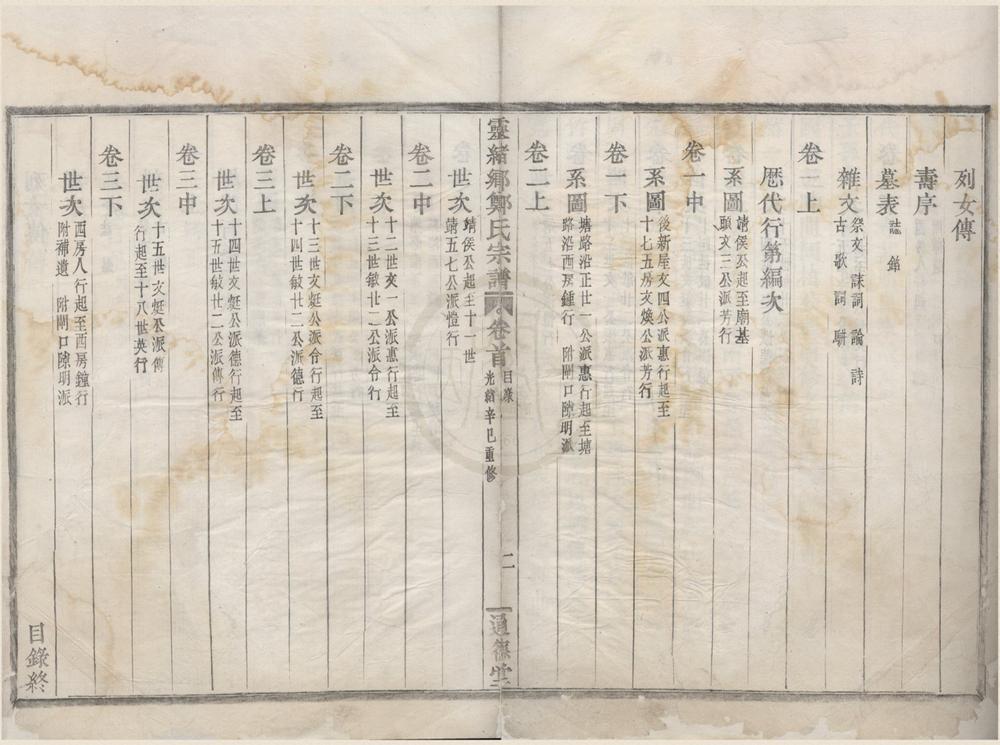 列女傳
壽序
墓表 誌 銘
雜文 祭文 誄詞 論 詩
古 正 歌 詞 聯
卷一上
歷代行第編次
系圖 靖侯公起至廟基
願文三公派芳行
卷一中
系圖 後新屋文四公派惠行起至
十七五房文煥公派芳行
卷一下
系圖 塘路沿正廿一公派惠行起至塘
路沿西房鍾行 附閘口隙明派
卷二上
靈緒鄉鄭氏宗譜 卷首 目錄 光緒辛巳重修 二 通德堂
世次 靖侯公起至十一世
靖五七公派愷行
卷二中
世次 十二世文一公派惠行起至
十三世敏廿二公派合行
卷二下
世次 十三世文烶公派合行起至
十四世敏廿二公派德行
卷三上
世次 十四世文烶公派德行起至
十五世敏廿二公派傳行
卷三中
世次 十五世文烶公派傳
行起至十八世英行
卷三下
世次 西房人行起至西房鐘行
附補遺 附閘口隙明派
目錄終